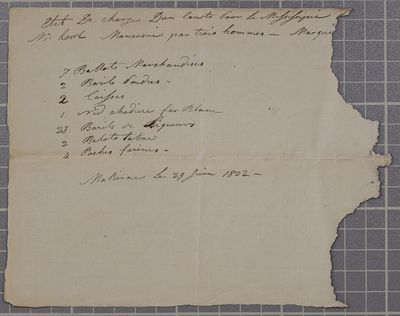 Etat De charge D'un Canots pour Le Missisipie
Mr hool Maneuvrée par trois hommes — Marqué
7 Ballots Marchandises
2 Barils Poudres -
2 Caisses
1 Nid chadiere fer Blanc
23 Barils de Liqueurs
2 Balots tabac
4 Poches farines -
Makinac Le 29 Juin 1802 -